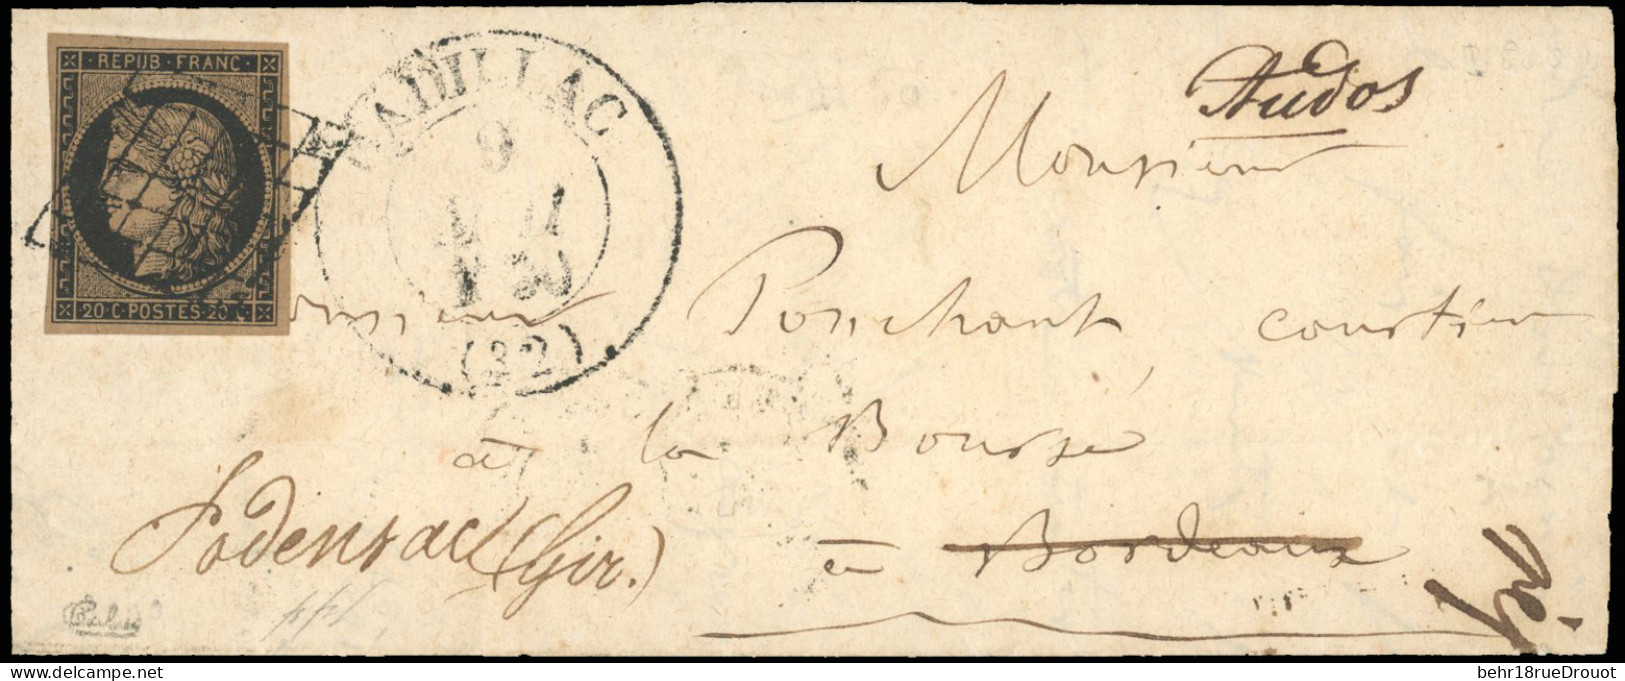 REPUB·FRANC·
20·C·POSTES·20
CADILLAC
9
(32)
Audos
Monsieur
Monsieur Ponchant courtier
à la Bourse
à Bordeaux
Podensac (Gir.)
behr18rueDrouot